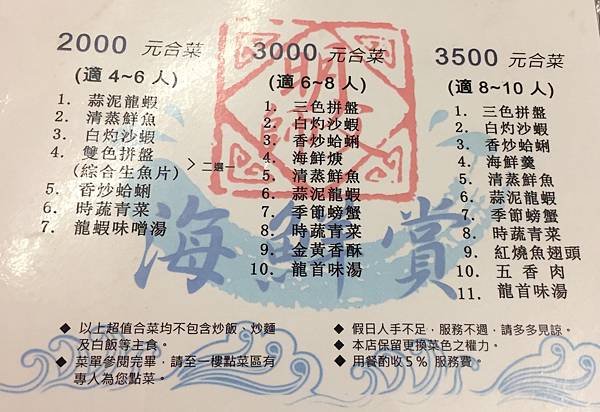 2000 元合菜
(適 4~6 人)
1. 蒜泥龍蝦
2. 清蒸鮮魚
3. 白灼沙蝦
4. 雙色拼盤
(綜合生魚片) > 二選一
5. 香炒蛤蜊
6. 時蔬青菜
7. 龍蝦味噌湯
3000 元合菜
(適 6~8 人)
1. 三色拼盤
2. 白灼沙蝦
3. 香炒蛤蜊
4. 海鮮焿
5. 清蒸鮮魚
6. 蒜泥龍蝦
7. 季節螃蟹
8. 時蔬青菜
9. 金黃香酥
10. 龍首味湯
3500 元合菜
(適 8~10 人)
1. 三色拼盤
2. 白灼沙蝦
3. 香炒蛤蜊
4. 海鮮羹
5. 清蒸鮮魚
6. 蒜泥龍蝦
7. 季節螃蟹
8. 時蔬青菜
9. 紅燒魚翅頭
10. 五香肉
11. 龍首味湯
海鮮賞
◆ 以上超值合菜均不包含炒飯、炒麵
及白飯等主食。
◆ 菜單參閱完畢，請至一樓點菜區有
專人為您點菜。
◆ 假日人手不足，服務不週，請多多見諒。
◆ 本店保留更換菜色之權力。
◆ 用餐酌收5% 服務費。